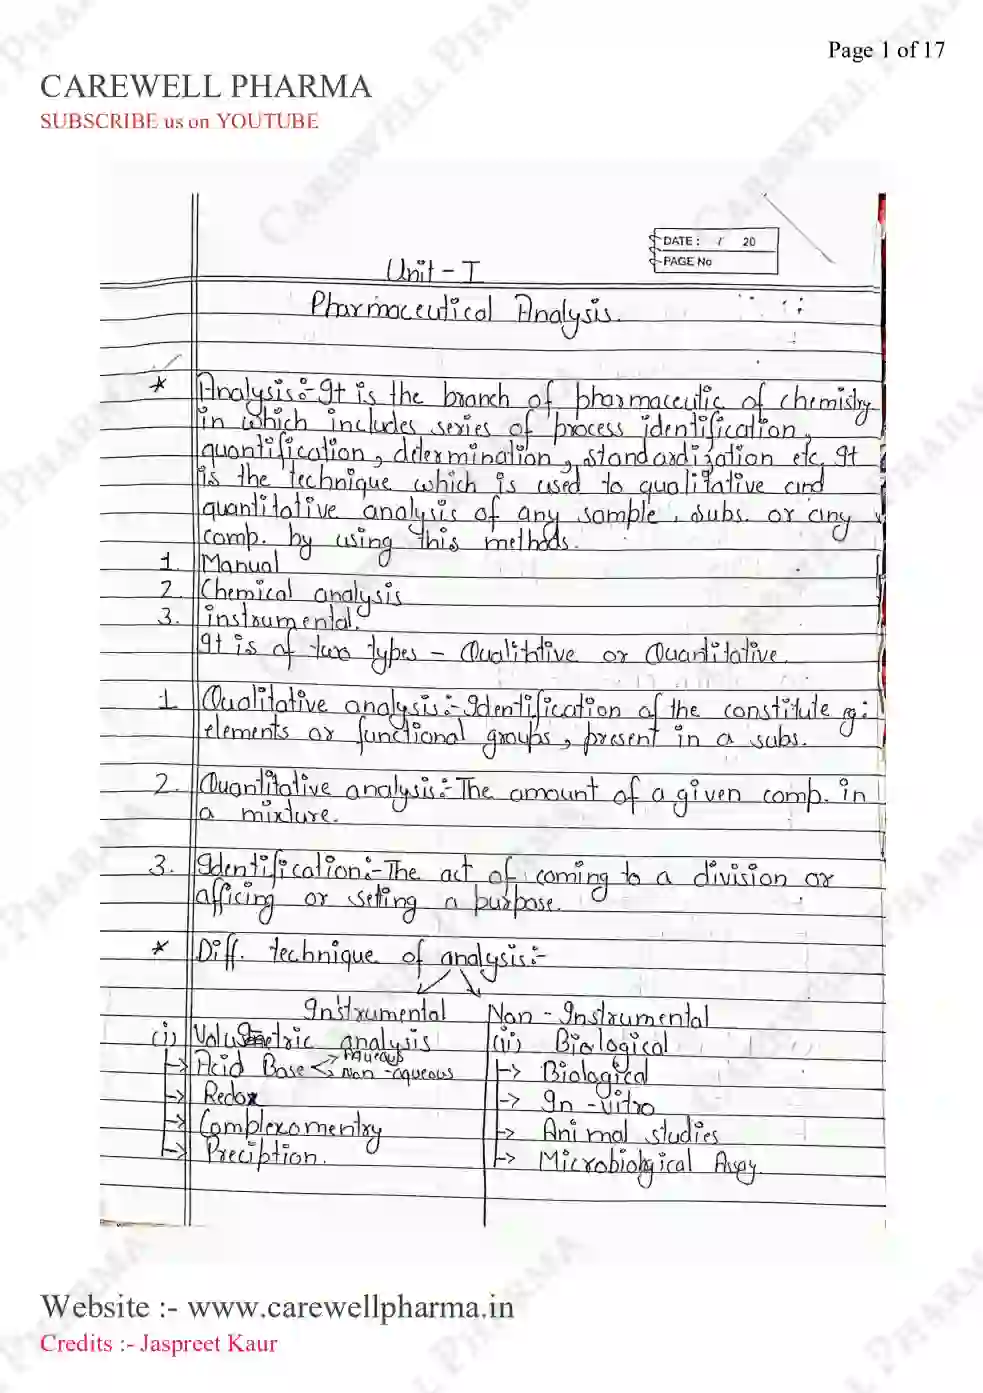 Page 1 of 17
CAREWELL PHARMA
SUBSCRIBE us on YOUTUBE
DATE : / 20
PAGE No
Unit - I
Pharmaceutical Analysis.
* Analysis:- It is the branch of pharmaceutic of chemistry
in which includes series of process identification,
quantification, determination, standardization etc. It
is the technique which is used to qualitative and
quantitative analysis of any sample, subs. or any
comp. by using this methods.
1. Manual
2. Chemical analysis
3. instrumental.
It is of two types - Qualititive or Quantitative.
1 Qualitative analysis:- Identification of the constitute eg:
elements or functional groups, present in a subs.
2. Quantitative analysis:- The amount of a given comp. in
a mixture.
3. Identification:- The act of coming to a division or
afficing or seting a purpose.
* Diff. technique of analysis:-
Instrumental Non - Instrumental
(i) Volumetric analysis (ii) Biological
-> Acid Base Aqueous -> Biological
Non-aqueous
-> Redox -> In -vitro
-> Complexomentry -> Animal studies
-> Preciption. -> Microbiological Assay.
Website :- www.carewellpharma.in
Credits :- Jaspreet Kaur